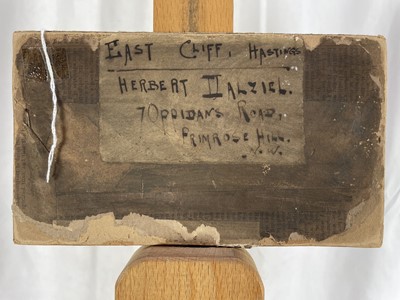 EAST CLIFF, HASTINGS
HERBERT DALZIEL.
7 OPPIDANS ROAD,
PRIMROSE HILL.
N. W.